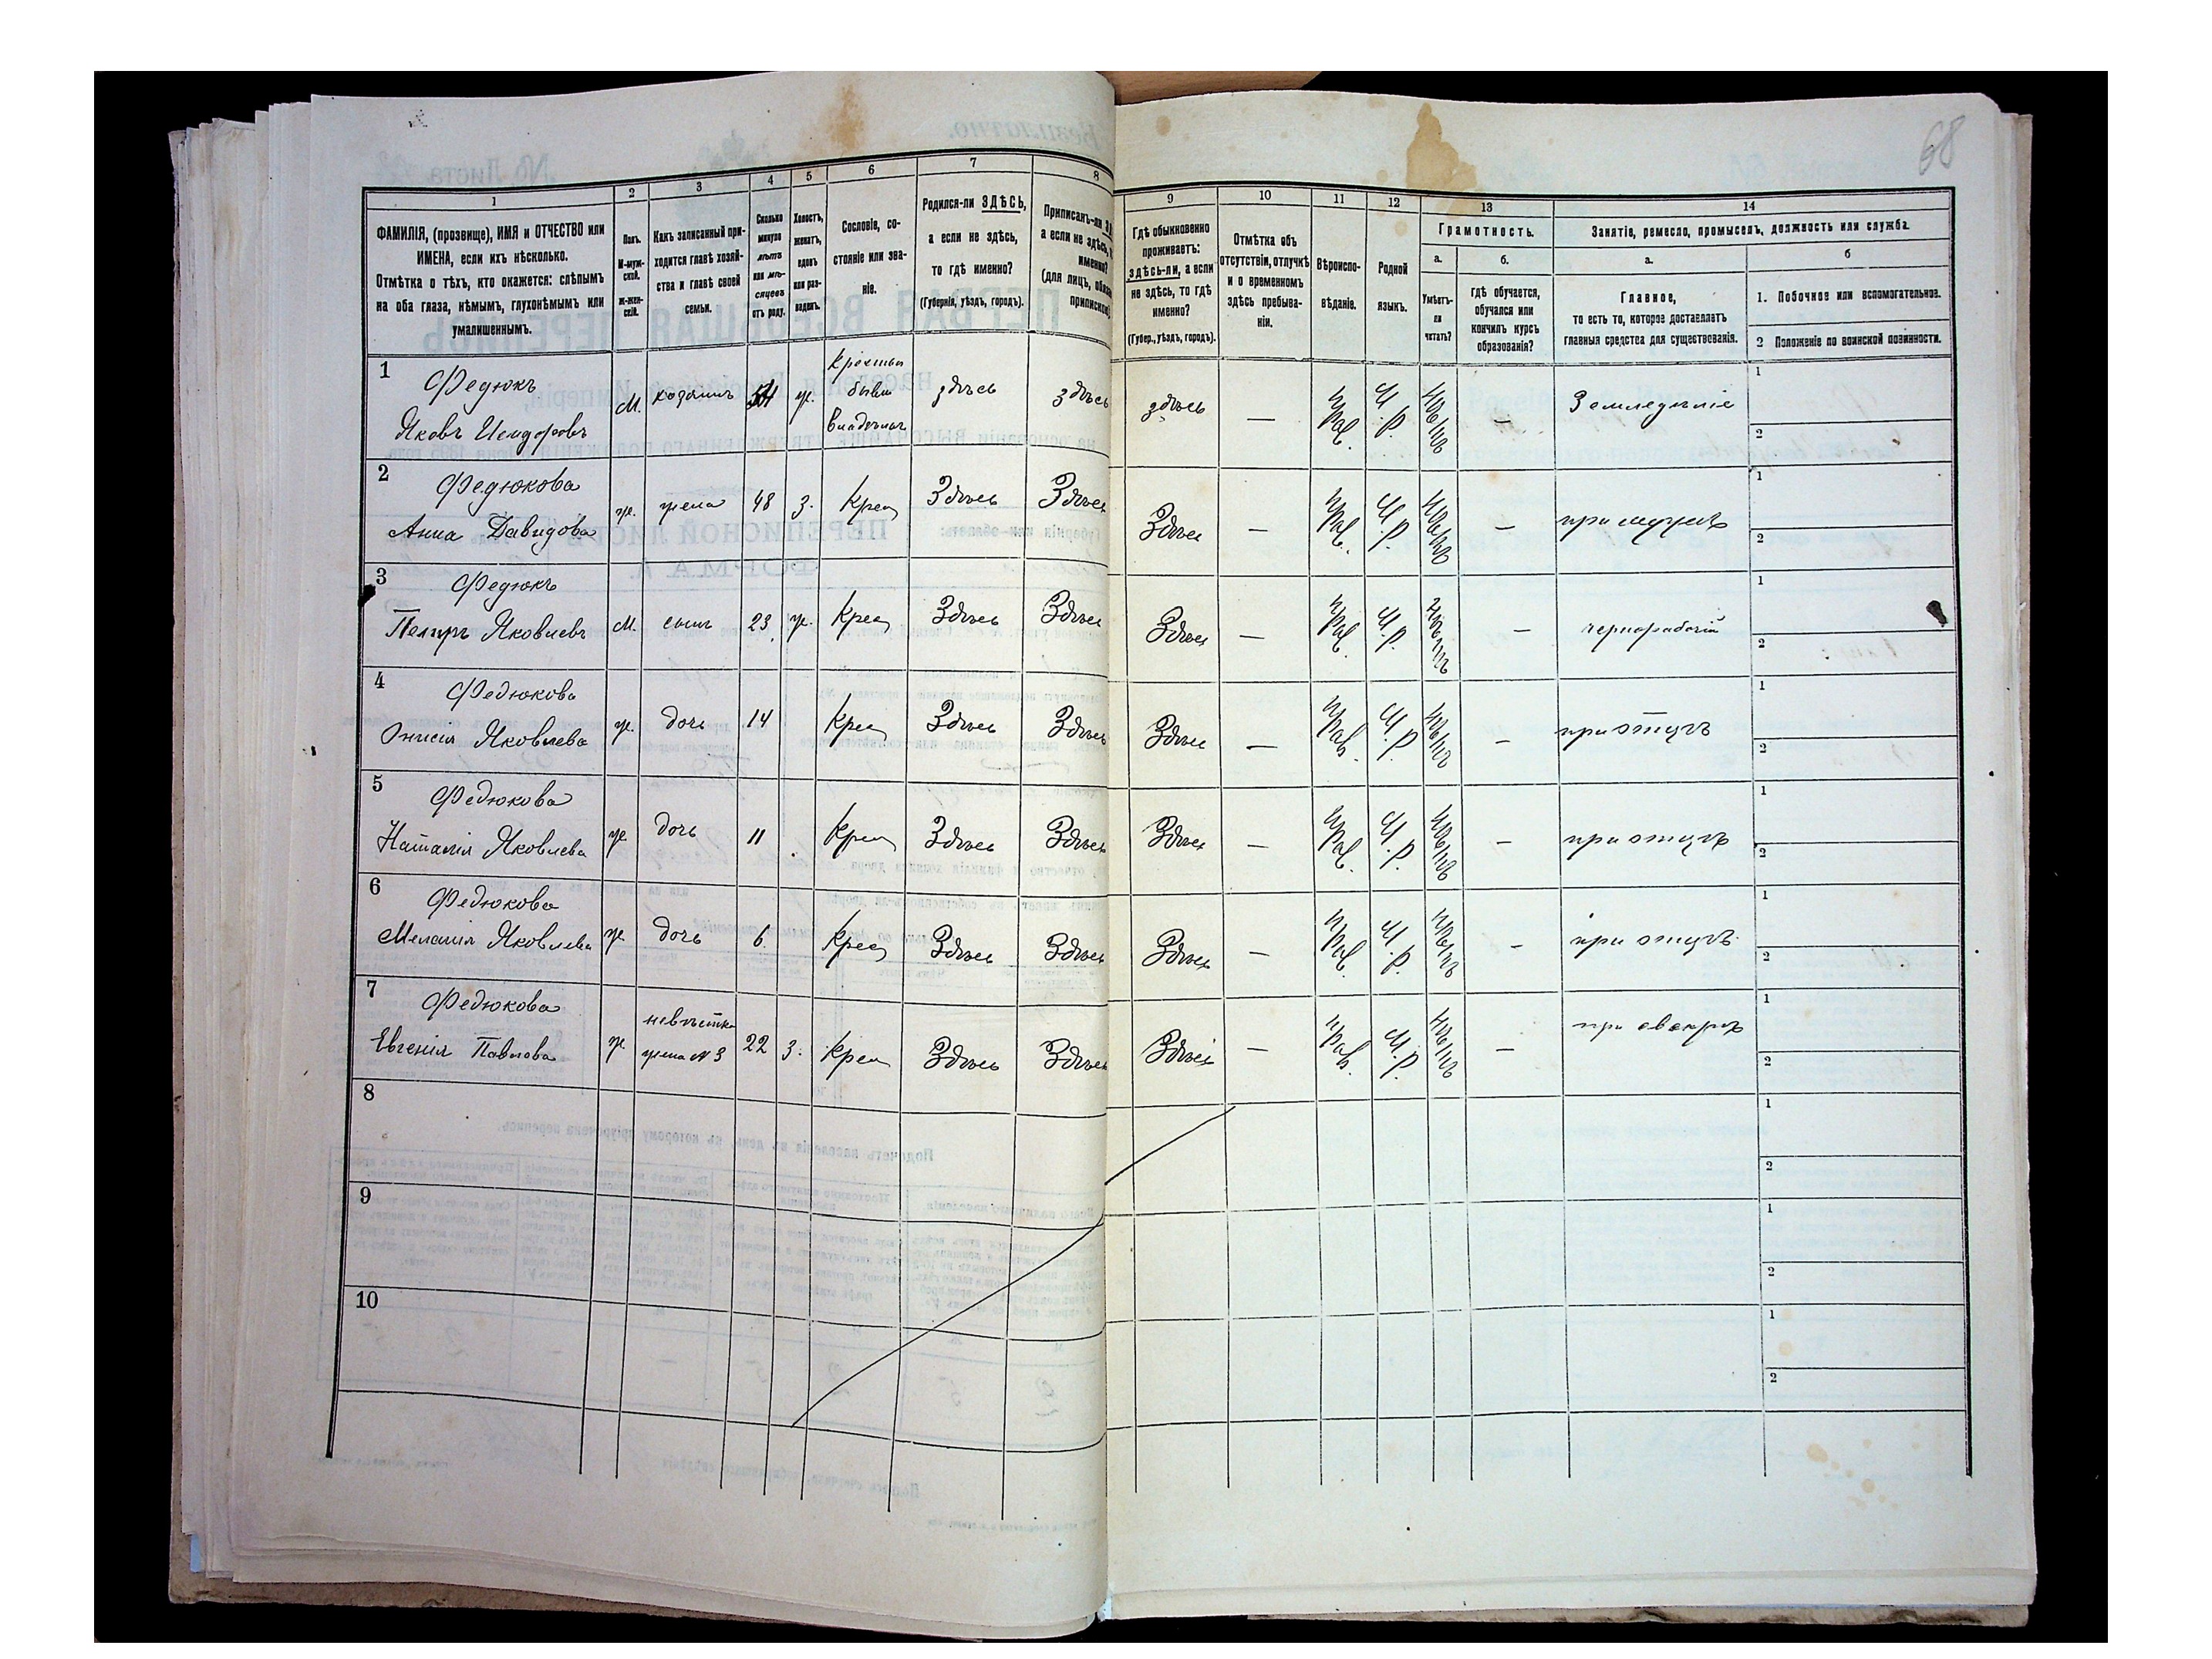 68
1 2 3 4 5 6 7 8 9 10 11 12 13 14
ФАМИЛІЯ, (прозвище), ИМЯ и ОТЧЕСТВО или
ИМЕНА, если ихъ нѣсколько.
Отмѣтка о тѣхъ, кто окажется: слѣпымъ
на оба глаза, нѣмымъ, глухонѣмымъ или
умалишеннымъ.
Полъ.
М-муж-
ской.
ж-жен-
скій.
Какъ записанный при-
ходится главѣ хозяй-
ства и главѣ своей
семьи.
Сколько
минуло
лѣтъ
или мѣ-
сяцевъ
отъ роду.
Холостъ,
женатъ,
вдовъ
или раз-
веденъ.
Сословіе, со-
стояніе или зва-
ніе.
Родился-ли ЗДѢСЬ,
а если не здѣсь,
то гдѣ именно?
(Губернія, уѣздъ, городъ).
Приписанъ-ли
а если не здѣсь,
именно?
(для лицъ,
Гдѣ обыкновенно
проживаетъ:
здѣсь-ли, а если
не здѣсь, то гдѣ
именно?
(Губер., уѣздъ, городъ).
Отмѣтка объ
отсутствіи, отлучкѣ
и о временномъ
здѣсь пребыва-
ніи.
Вѣроиспо-
вѣданіе.
Родной
языкъ.
Грамотность.
а. б.
Умѣетъ-
ли
читать?
гдѣ обучается,
обучался или
кончилъ курсъ
образованія?
Занятіе, ремесло, промыселъ, должность или служба.
а. б
Главное,
то есть то, которое доставляетъ
главныя средства для существованія.
1. Побочное или вспомогательное.
2 Положеніе по воинской повинности.
1 Федюкъ
Яковъ Исидоровъ М. хозяинъ 54 ж. Крестьян бывш владѣльч здѣсь здѣсь здѣсь — Прав. М.Р. нѣтъ — Земледѣліе 1 2
2 Федюкова
Анна Давидова ж. жена 48 з. Крес Здѣсь Здѣсь Здѣсь — Прав. М.Р. нѣтъ — при мужѣ 1 2
3 Федюкъ
Петръ Яковлевъ М. сынъ 23 ж. Крес Здѣсь Здѣсь Здѣсь — Прав. М.Р. нѣтъ — чернорабочій 1 2
4 Федюкова
Онисія Яковлева ж. дочь 14 Крес Здѣсь Здѣсь Здѣсь — Прав. М.Р. нѣтъ — при отцѣ 1 2
5 Федюкова
Наталія Яковлева ж. дочь 11 Крес Здѣсь Здѣсь Здѣсь — Прав. М.Р. нѣтъ — при отцѣ 1 2
6 Федюкова
Меланія Яковлева ж. дочь 6. Крес Здѣсь Здѣсь Здѣсь — Прав. М.Р. нѣтъ — при отцѣ 1 2
7 Федюкова
Евгенія Павлова ж. невѣстка жена N 3 22 з. Крес Здѣсь Здѣсь Здѣсь — Прав. М.Р. нѣтъ — при свекрѣ 1 2
8 1 2
9 1 2
10 1 2